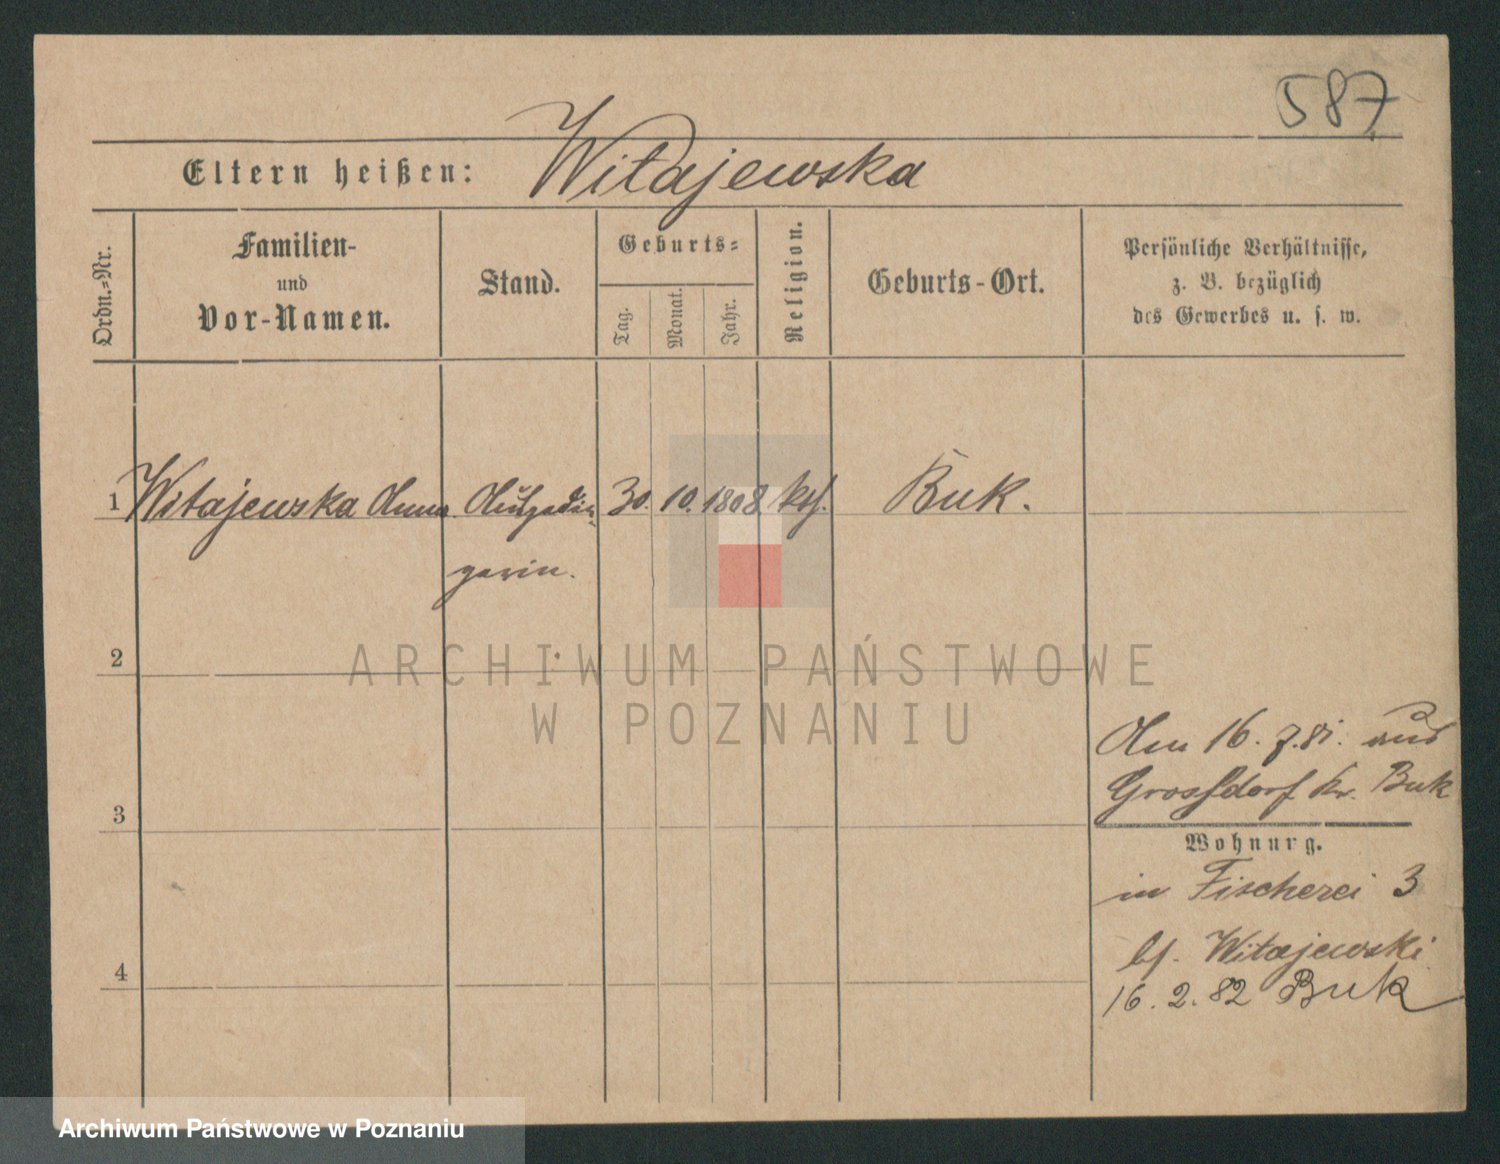 587
Eltern heißen: Witajewska
Ordn.-Nr.
Familien-
und
Vor-Namen.
Stand.
Geburts=
Tag.
Monat.
Jahr.
Religion.
Geburts-Ort.
Persönliche Verhältnisse,
z. B. bezüglich
des Gewerbes u. s. w.
1 Witajewska Anna 30. 10. 1808 kth. Buk.
gerin.
2
ARCHIWUM PAŃSTWOWE
W POZNANIU
Am 16. 7. 81. aus
Grossdorf Kr. Buk
3
Wohnung.
in Fischerei 3
bf. Witajewski
4
16. 2. 82 Buk
Archiwum Państwowe w Poznaniu